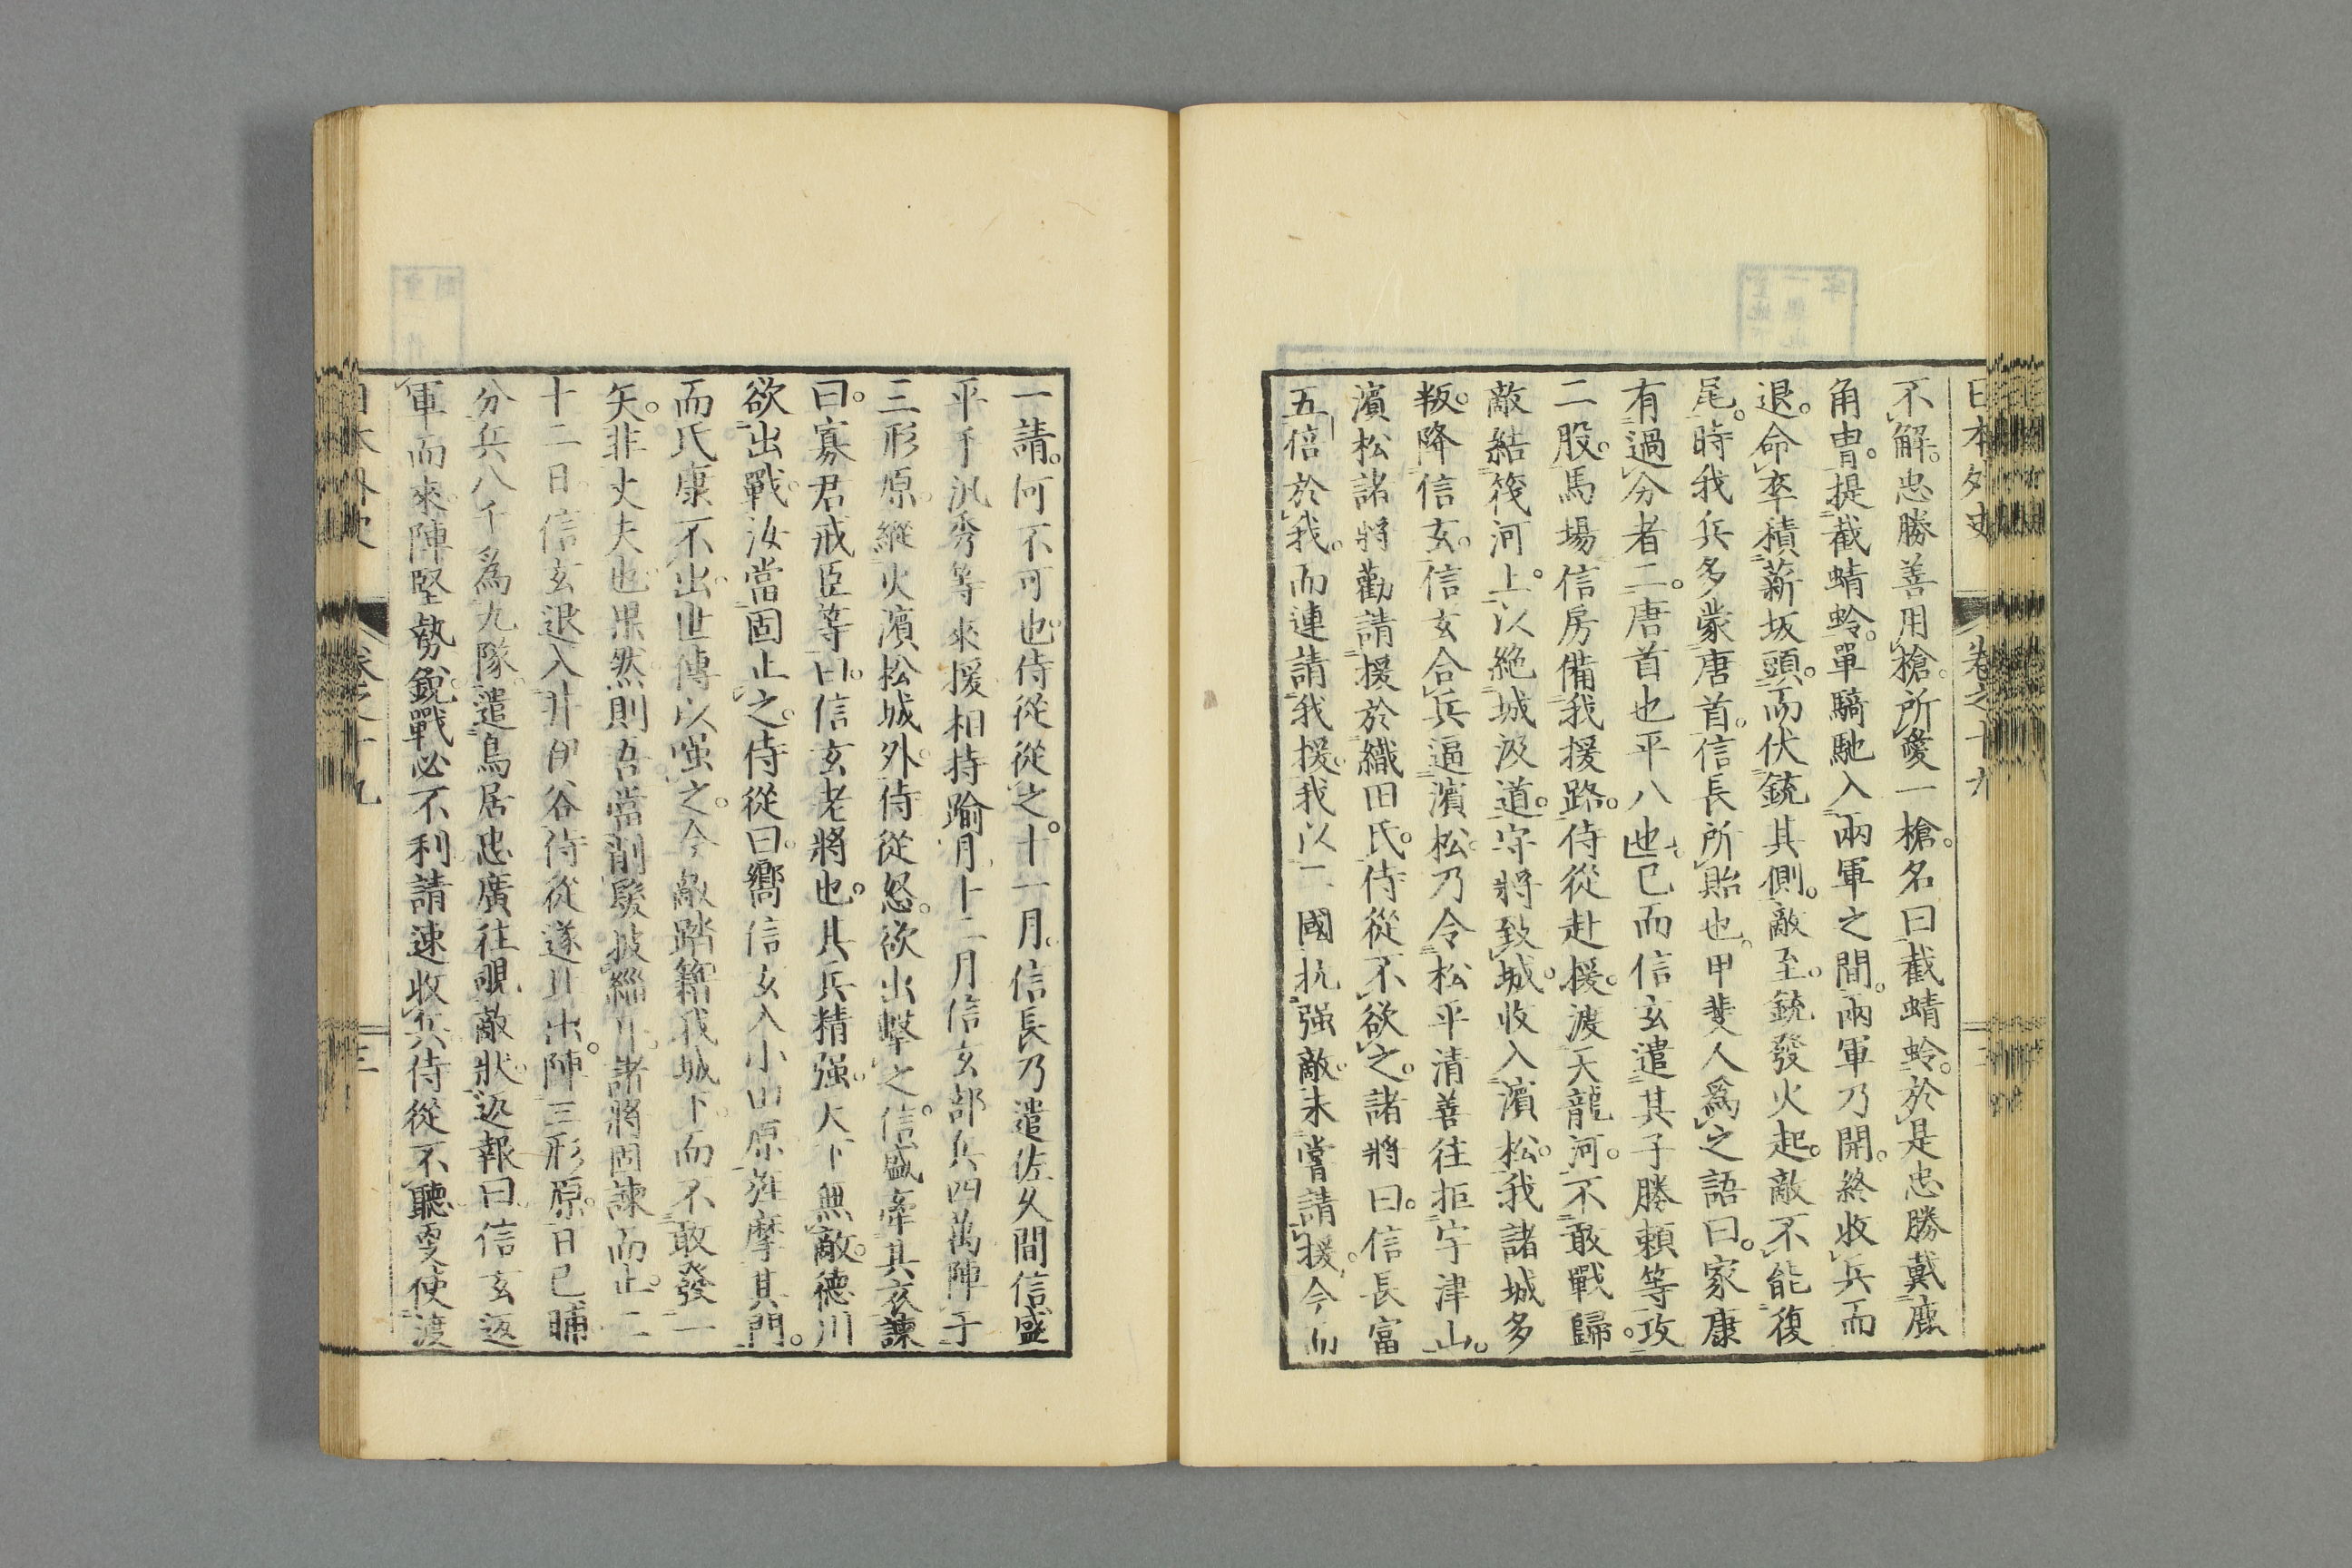 日本外史 卷之十九
不解。忠勝善用槍。所愛一槍。名曰截蜻蛉。於是忠勝戴鹿
角冑。提截蜻蛉。單騎馳入兩軍之間。兩軍乃開。終收兵而
退。命卒積薪坂頭。而伏銃其側。敵至。銃發火起。敵不能復
尾。時我兵多蒙唐首。信長所貽也。甲斐人爲之語曰。家康
有過分者二。唐首也平八也已而信玄遣其子勝頼等攻
二股。馬場信房備我援路。侍從赴援。渡天龍河。不敢戰歸。
敵結筏河上。以絶城汲道。守將致城。收入濱松。我諸城多
叛。降信玄。信玄合兵逼濱松。乃令松平清善往拒宇津山。
濱松諸將勸請援於織田氏。侍從不欲之。諸將曰。信長富
五倍於我。而連請我援。我以一國抗强敵。未嘗請援。今而
一請。何不可也。侍從從之。十一月。信長乃遣佐久間信盛
平手汎秀等來援相持踰月。十二月信玄部兵四萬陣于
三形原。縱火濱松城外。侍從怒。欲出擊之。信盛牽其衣諫
曰。寡君戒臣等曰。信玄老將也。其兵精强。天下無敵。德川
欲出戰。汝當固止之。侍從曰。嚮信玄入小山原。旌摩其門。
而氏康不出。世傳以嗤之。今敵踏籍我城下。而不敢發一
矢。非丈夫也。果然則吾當削髮披緇耳。諸將固諫而止。二
十二日。信玄退入井伊谷。侍從遂出陣三形原。日已晡
分兵八千爲九隊。遣鳥居忠廣往覘敵狀。返報曰。信玄返
軍而來。陣堅勢銳。戰必不利。請速收兵。侍從不聽。更使渡
日本外史 卷之十九 三